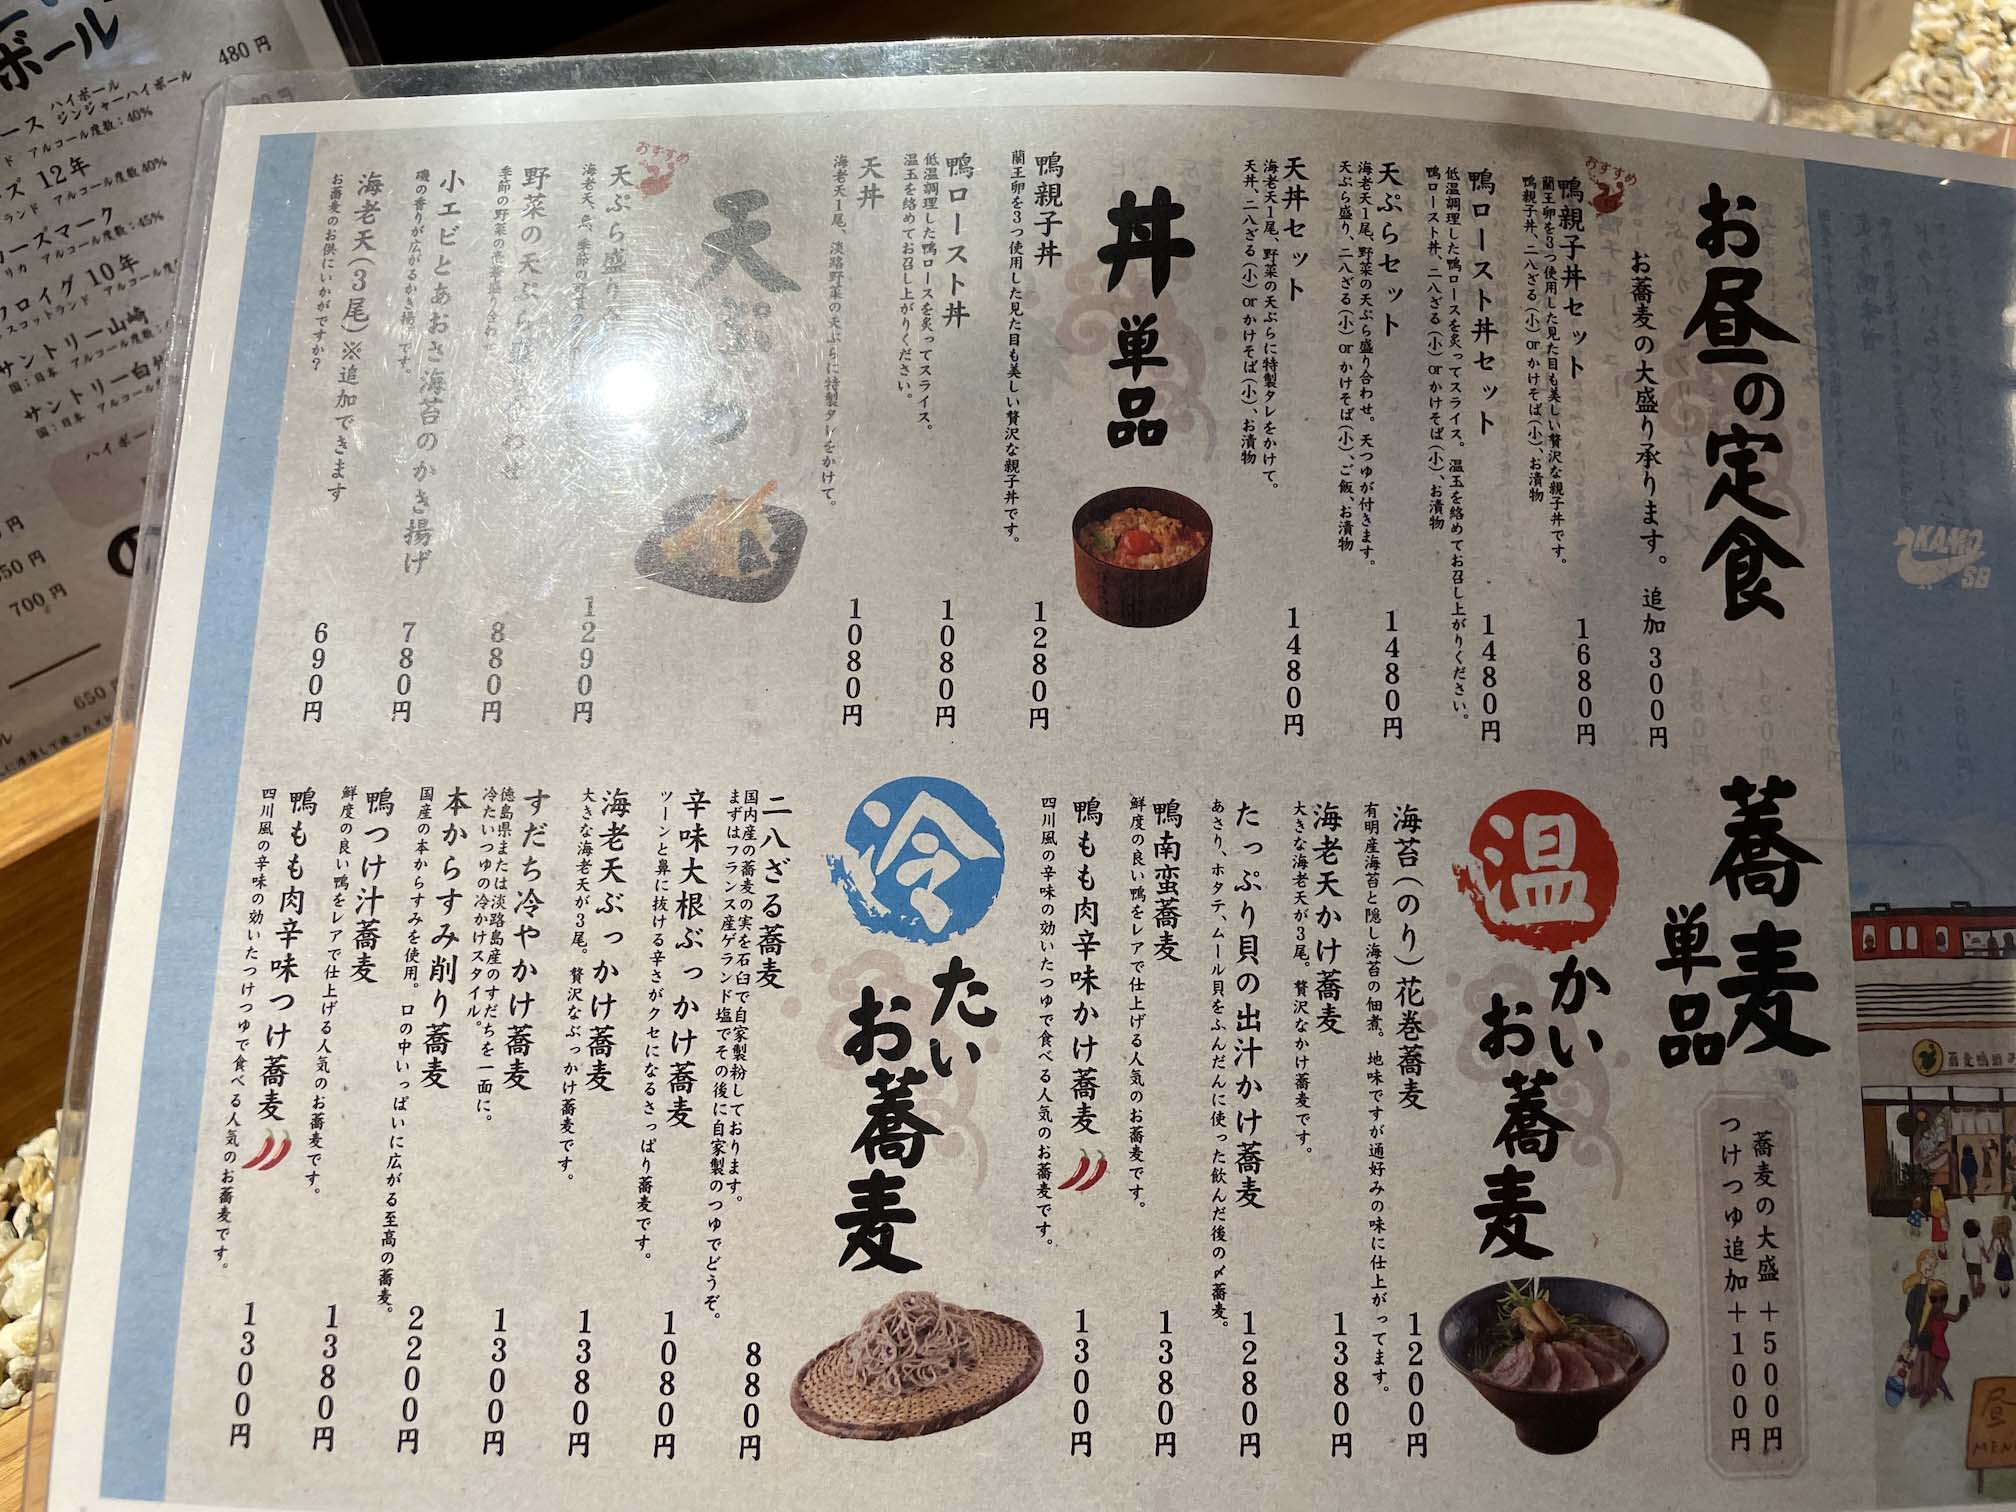 お昼の定食
お蕎麦の大盛り承ります。 追加 300円
おすすめ
鴨親子丼セット 1680円
蘭王卵を3つ使用した見た目も美しい贅沢な親子丼です。
鴨親子丼、二八ざる(小)orかけそば(小)、お漬物
鴨ロースト丼セット 1480円
低温調理した鴨ロースを炙ってスライス。温玉を絡めてお召し上がりください。
鴨ロースト丼、二八ざる(小)orかけそば(小)、お漬物
天ぷらセット 1480円
海老天1尾、野菜の天ぷら盛り合わせ。天つゆが付きます。
天ぷら盛り、二八ざる(小)orかけそば(小)、ご飯、お漬物
天丼セット 1480円
海老天1尾、野菜の天ぷらに特製タレをかけて。
天丼、二八ざる(小)orかけそば(小)、お漬物
丼 単品
鴨親子丼 1280円
蘭王卵を3つ使用した見た目も美しい贅沢な親子丼です。
鴨ロースト丼 1080円
低温調理した鴨ロースを炙ってスライス。
温玉を絡めてお召し上がりください。
天丼 1080円
海老天1尾、淡路野菜の天ぷらに特製タレをかけて。
天
おすすめ
天ぷら盛り 1290円
海老天、魚、季節の野菜
野菜の天ぷら 880円
季節の野菜の壱番盛り合わせ
小エビとあおさ海苔のかき揚げ 780円
磯の香りが広がるかき揚げです。
海老天(3尾)※追加できます 690円
お蕎麦のお供にいかがですか?
蕎麦 単品
蕎麦の大盛 +500円
つけつゆ追加+100円
温かいお蕎麦
海苔(のり)花巻蕎麦 1200円
有明産海苔と隠し海苔の佃煮。地味ですが通好みの味に仕上がってます。
海老天かけ蕎麦 1380円
大きな海老天が3尾。贅沢なかけ蕎麦です。
たっぷり貝の出汁かけ蕎麦 1280円
あさり、ホタテ、ムール貝をふんだんに使った飲んだ後の〆蕎麦。
鴨南蛮蕎麦 1380円
鮮度の良い鴨をレアで仕上げる人気のお蕎麦です。
鴨もも肉辛味かけ蕎麦 1300円
四川風の辛味の効いたつゆで食べる人気のお蕎麦です。
冷たいお蕎麦
二八ざる蕎麦 880円
国内産の蕎麦の実を石臼で自家製粉しております。
まずはフランス産ゲランド塩でその後に自家製のつゆでどうぞ。
辛味大根ぶっかけ蕎麦 1080円
ツーンと鼻に抜ける辛さがクセになるさっぱり蕎麦です。
海老天ぶっかけ蕎麦 1380円
大きな海老天が3尾。贅沢なぶっかけ蕎麦です。
すだち冷やかけ蕎麦 1300円
徳島県または淡路島産のすだちを一面に。
冷たいつゆの冷かけスタイル。
本からすみ削り蕎麦 2200円
国産の本からすみを使用。口の中いっぱいに広がる至高の蕎麦。
鴨つけ汁蕎麦 1380円
鮮度の良い鴨をレアで仕上げる人気のお蕎麦です。
鴨もも肉辛味つけ蕎麦 1300円
四川風の辛味の効いたつけつゆで食べる人気のお蕎麦です。
KAMO
SB
昼
MEN
ボール
480円
ハイボール
ジンジャーハイボール
アルコール度数:40%
ズ 12年
ランド アルコール度数 40%
ーズマーク
リカ アルコール度数:45%
フロイグ 10年
スコットランド アルコール度数
サントリー山崎
国:日本 アルコール度数
サントリー白州
国:日本 アルコール
ハイボー
700円
650円